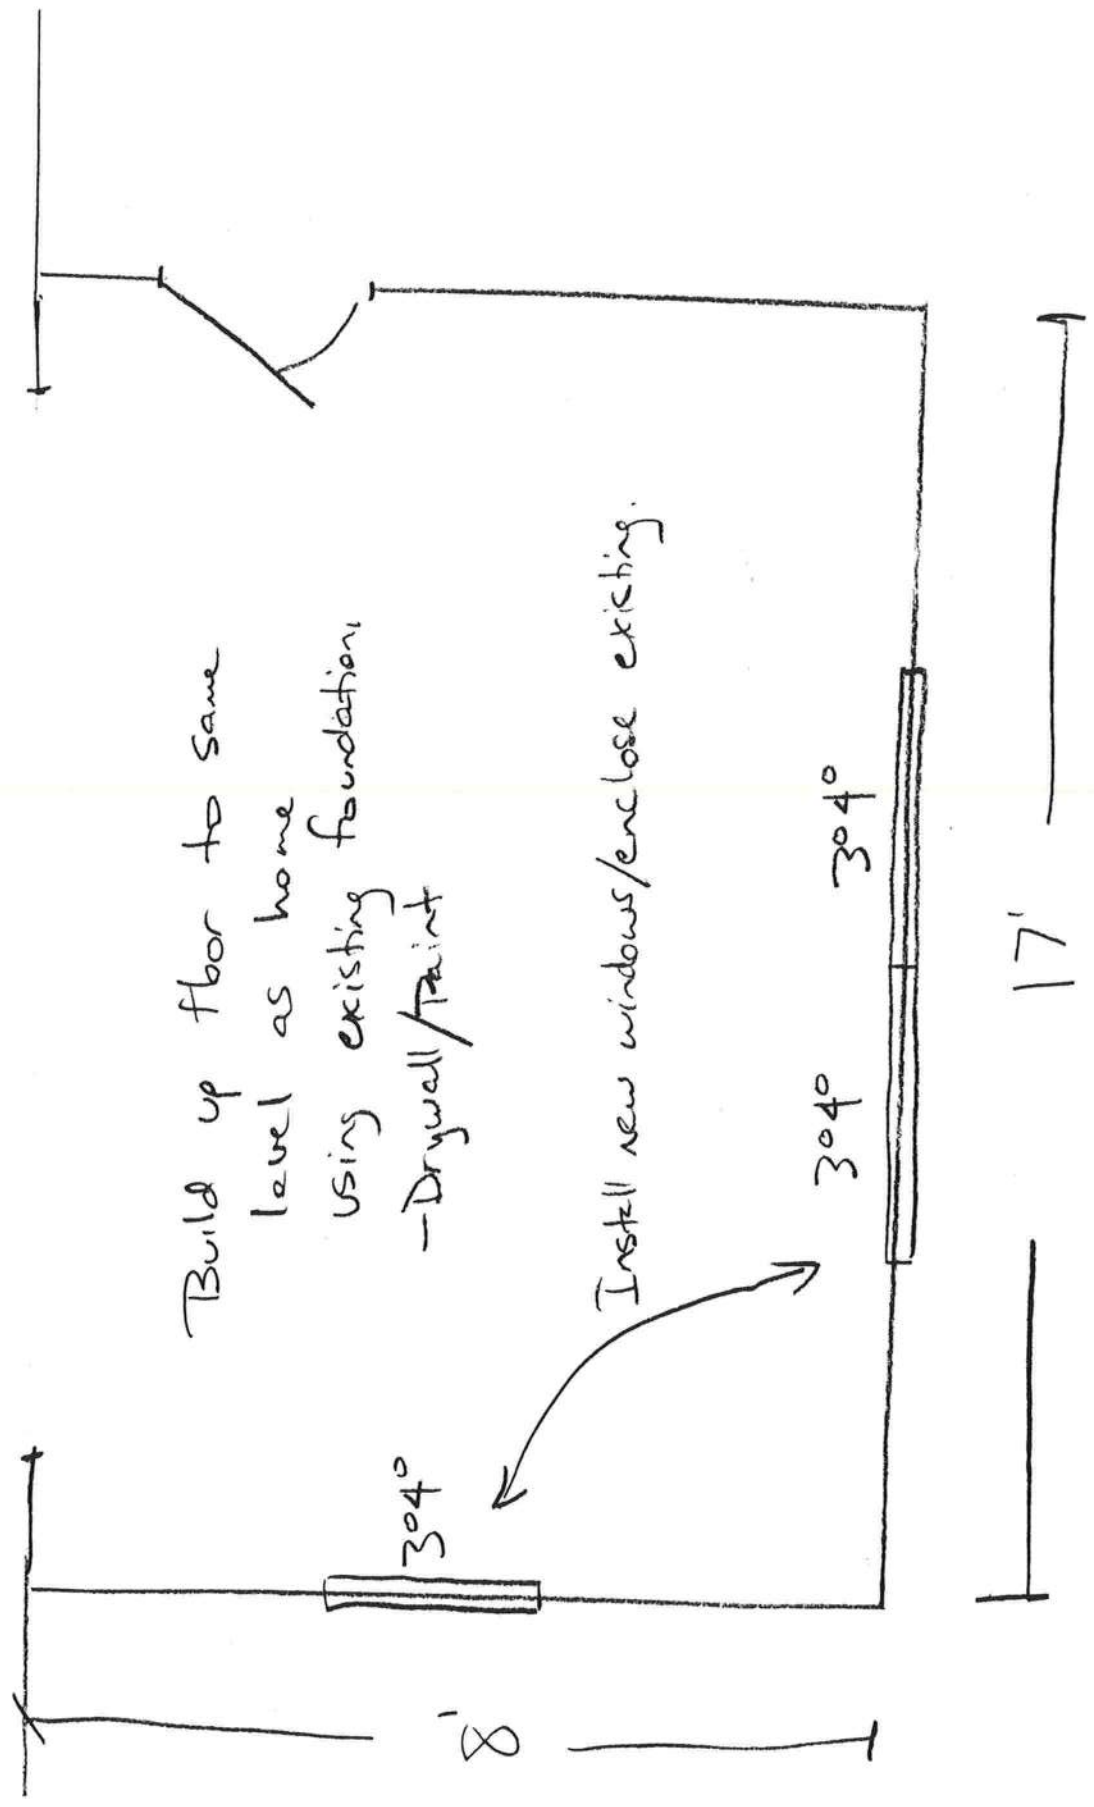 Build up floor to same
level as home
using existing foundation.
-Drywall/Paint
Install new windows/enclose existing.
3⁰4⁰
3⁰4⁰
3⁰4⁰
8'
17'